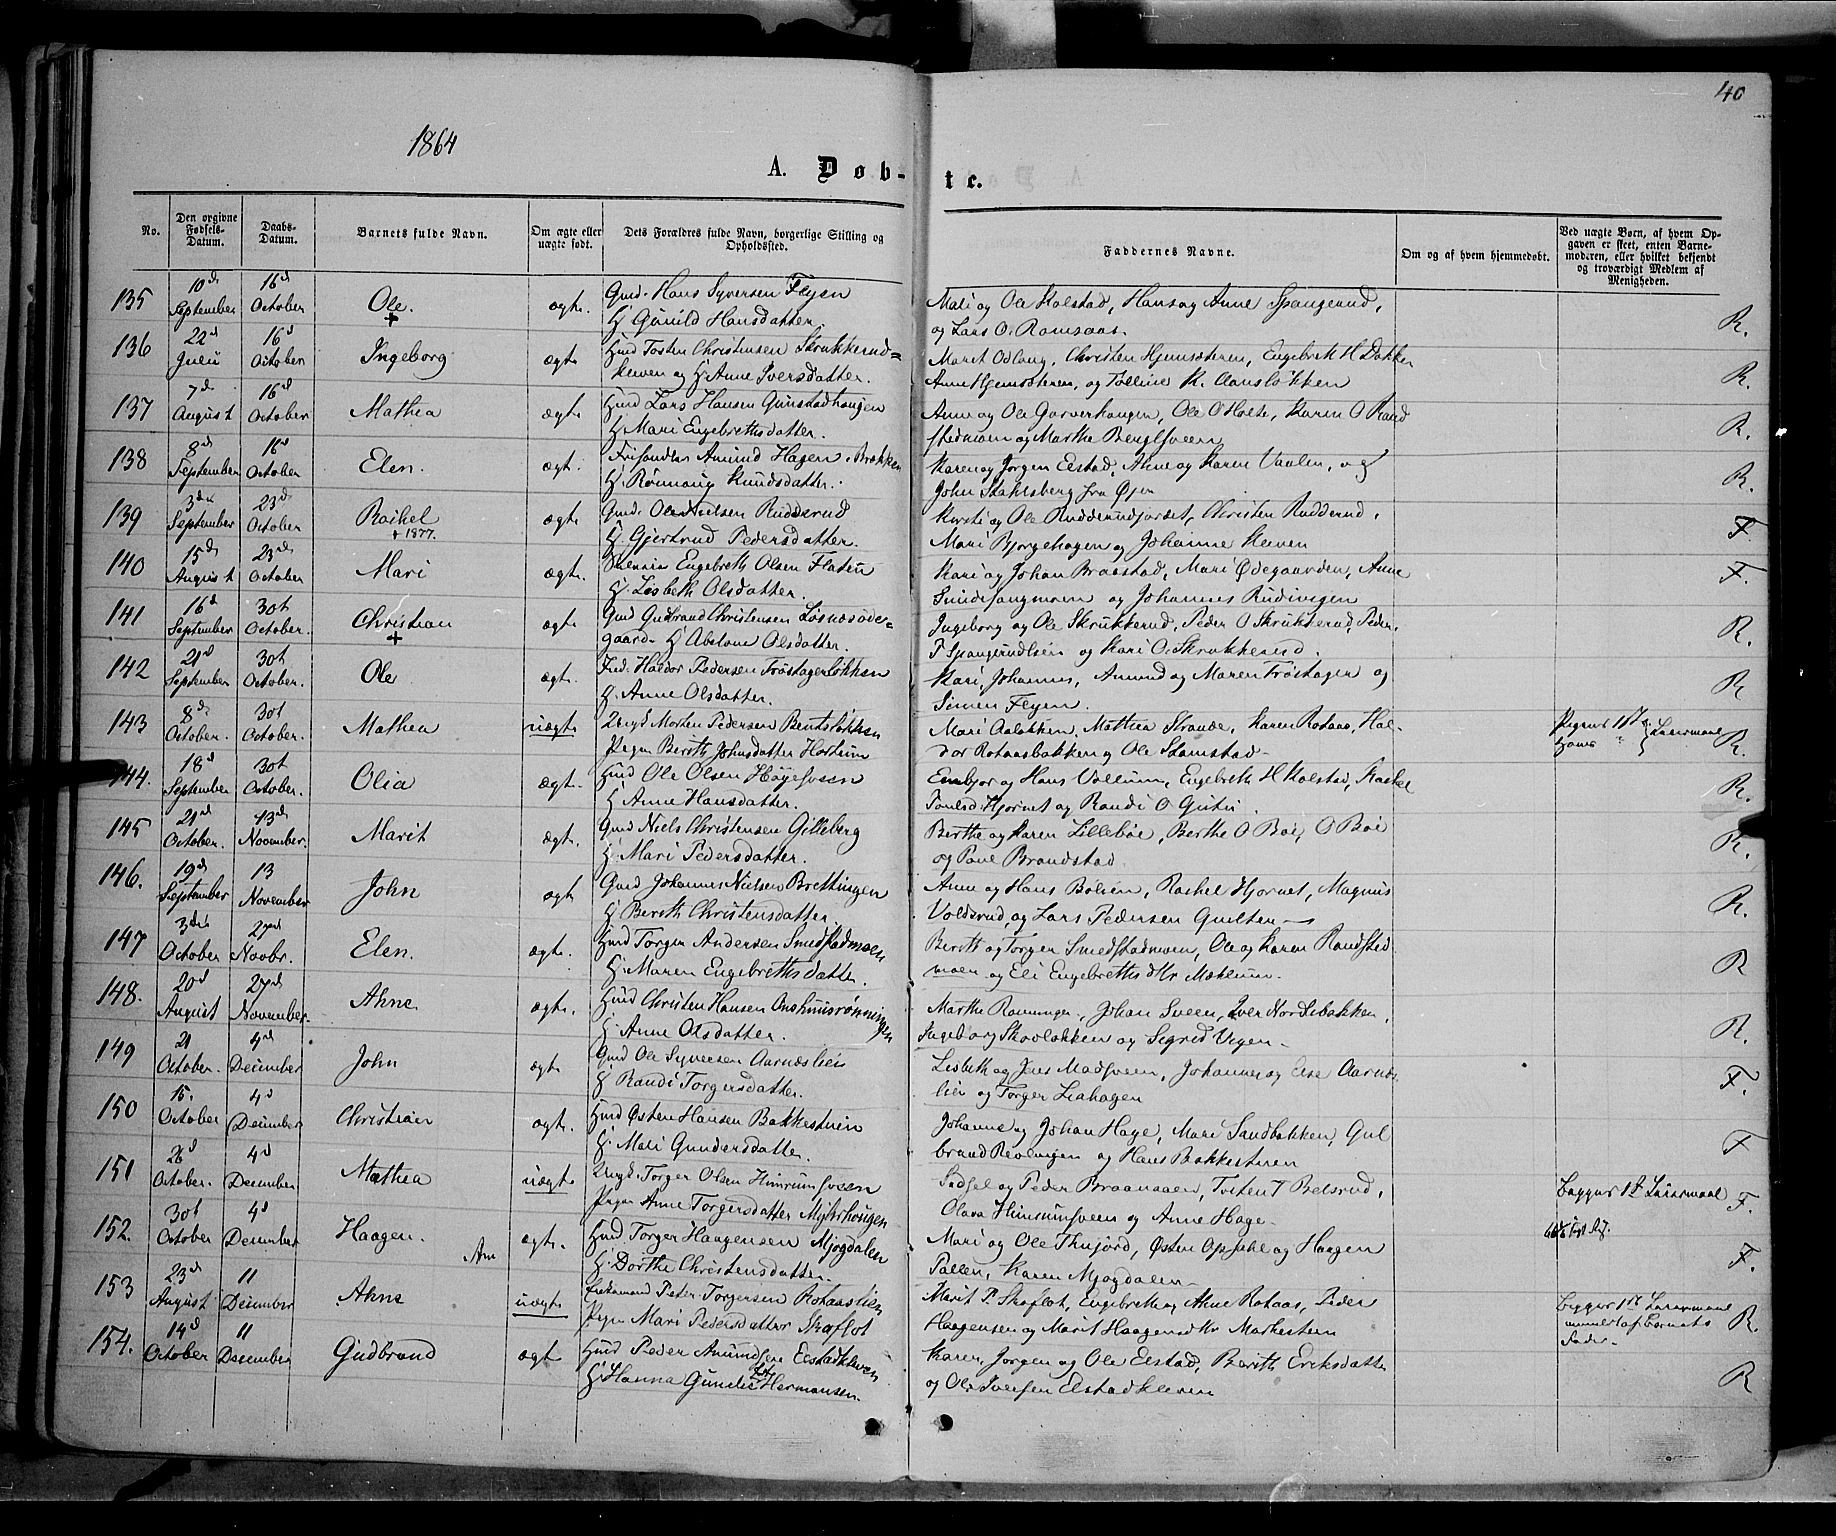 40
1864
A. Døb-
te.
No.
Den opgivne Fødsels-Datum.
Daabs-Datum.
Barnets fulde Navn.
Om ægte eller uægte født.
Dets Forældres fulde Navn, borgerlige Stilling og Opholdssted.
Faddernes Navne.
Om og af hvem hjemmedøbt.
Ved uægte Børn, af hvem Opgaven er skeet, enten Barnemoderen, eller hvilket bekjendt og troværdigt Medlem af Menigheden.
135 10d September 16d October Ole. + ægte. Gmd. Hans Syversen Flyen
H. Gunild Hansdatter.
Mali og Ole Kolstad, Hans og Anne Spangrud,
og Lars O. Ramsaas. R.
136 22d Juli 16d October Ingeborg ægte Hmd Tosten Christensen Skrukkerud=
kleven og H. Anne Iversdatter.
Marit Odlong, Christen Hjemsæteren, Engebreth H Dakken
Anne Hjemsæteren, og Talline K. Aansløkken R.
137 7d August 16d October Mathea ægte Hmd Lars Hansen Gunstadhougen
H. Mari Engebrethsdatter.
Anne og Ole Garverhaugen, Ole O Holte, Karen O Rand
stadmoen og Marthe Berglsveen R.
138 8d September 16d October Elen. ægte. Amund Hagen
H. Rønnaug Knudsdatter.
Karen og Jørgen Elstad, Ahne og Karen Vaalen, og
John Stahlsberg fra Øjer R.
139 3die September 23d October Rachel + 1877. ægte Gmd. Ole Nielsen Rudderud
H. Gjertrud Pedersdatter.
Kirsti og Ole Rudderudjordet, Christen Rudderud,
Mari Bjørgehagen og Johanne Kleven F.
140 15d August 23d October Mari ægte. Engebreth Olsen Flaten
H. Lisbeth Olsdatter.
Kari og Johan Braastad, Mari Ødegaarden, Anne
og Johannes Rudivigen F.
141 16d September 30t October. Christian + ægte Gmd Gudbrand Christensen Losnesøde=
gaard. H Abelone Olsdatter.
Ingeborg og Ole Skrukkerud, Peder O Skrukkerud, Peder
P Spangrudlien og Kari O. Skrukkerud. R.
142 21d September 30t October. Ole ægte. Ind. Haldor Pedersen Trøstagerløkken
H. Anne Olsdatter.
Kari, Johannes, Amund og Maren Trøstager og
Simen Flyen. R
143 8d October. 30t October. Mathea uægte Ungk Morten Pedersen Bentsløkken
Pigen Berith Johnsdatter Horium
Mari Aaløkken, Mathea Strande, Karen Rotaas, Hal-
dor Rotaasbakken og Ole Stamstad
Pigens 1st & Hans Leiermaal R.
144. 18d September 30t October. Olia ægte. Hmd Ole Olsen Høyesveen
H. Anne Hansdatter.
Embjør og Hans Vollum, Engebreth H Kolstad, Raakel
Povelsd: Hjornet og Randi O Gutu. R.
145 21d October. 13d November. Marit ægte. Gmd Niels Christensen Gilleberg
H. Mari Pedersdatter.
Berthe og Karen Lillebøe, Berthe O Bøe, O Bøe
og Povel Brandstad. R.
146. 19d September 13 November John ægte Gmd Johannes Nielsen Brettingen
H. Berith Christensdatter
Anne og Hans Bølien, Rachel Hjornet, Magnus
Voldsrud, og Lars Pedersen Quilten R.
147 3die October 27d Novbr. Elen. ægte. Hmd Torger Andersen Smedstadmoen
H. Maren Engebrethsdatter.
Berith og Torger Smedstadmoen, Ole og Karen Randsted
moen og Eli Engebrethsd Nr Mæhlum. R
148. 20d August 27d November. Ahne ægte. Hmd Christen Hansen Onshuusrønningen
H. Anne Olsdatter.
Marthe Rønningen, Johan Sveen, Iver Nordlibakken,
Ingeborg Skovløkken og Sigrid Vegen. R.
149 21 October. 4d December John ægte Gmd Ole Syversen Aarneslien
H. Randi Torgersdatter.
Lisbeth og Jens Madsveen, Johannes og Else Aarnes
lien og Torger Liahagen F.
150 15. October 4d December Christian ægte. Hmd Østen Hansen Bakkestuen
H. Mari Gundersdatter.
Johanne og Johan Hage, Mari Sandbakken, Gul
brand Revlingen og Hans Bakkestuen F
151 26d October. 4d December Mathea uægte Ungk. Torger Olsen Himrumsveen
Pigen Anne Torgersdatter Myhrhougen
Sidsel og Peder Braanaaen, Tosten T Belsrud,
Olava Himrumsveen og Anne Hage
Begges 1st Leiermaal F.
152. 30t October 4d December Haagen. ægte. Hmd Torger Haagensen Mjogdalen
H. Dorthe Christensdatter.
Mari og Ole Thujord, Østen Opsahl og Haagen
Pallen, Karen Mjogdalen F.
153 23d August 11 December Ahne Ane uægte Enkemand Peder Torgersen Rotaaslien
Pigen Mari Pedersdatter Skaflot
Marit P. Skaflot, Engebreth og Ahne Rotaas, Peder
Haagensen og Marit Haagensd Nr Markestuen
Begges 1st Leiermaal
anmeldt af Barnets
Fader. R.
154. 14d October 11 December Gudbrand ægte Hmd Peder Amundsen Elstadkleven
H. Hanna Gundie Hermansen.
Karen, Jørgen og Ole Elstad, Berith Eriksdatter
og Ole Iversen Elstadkleven R